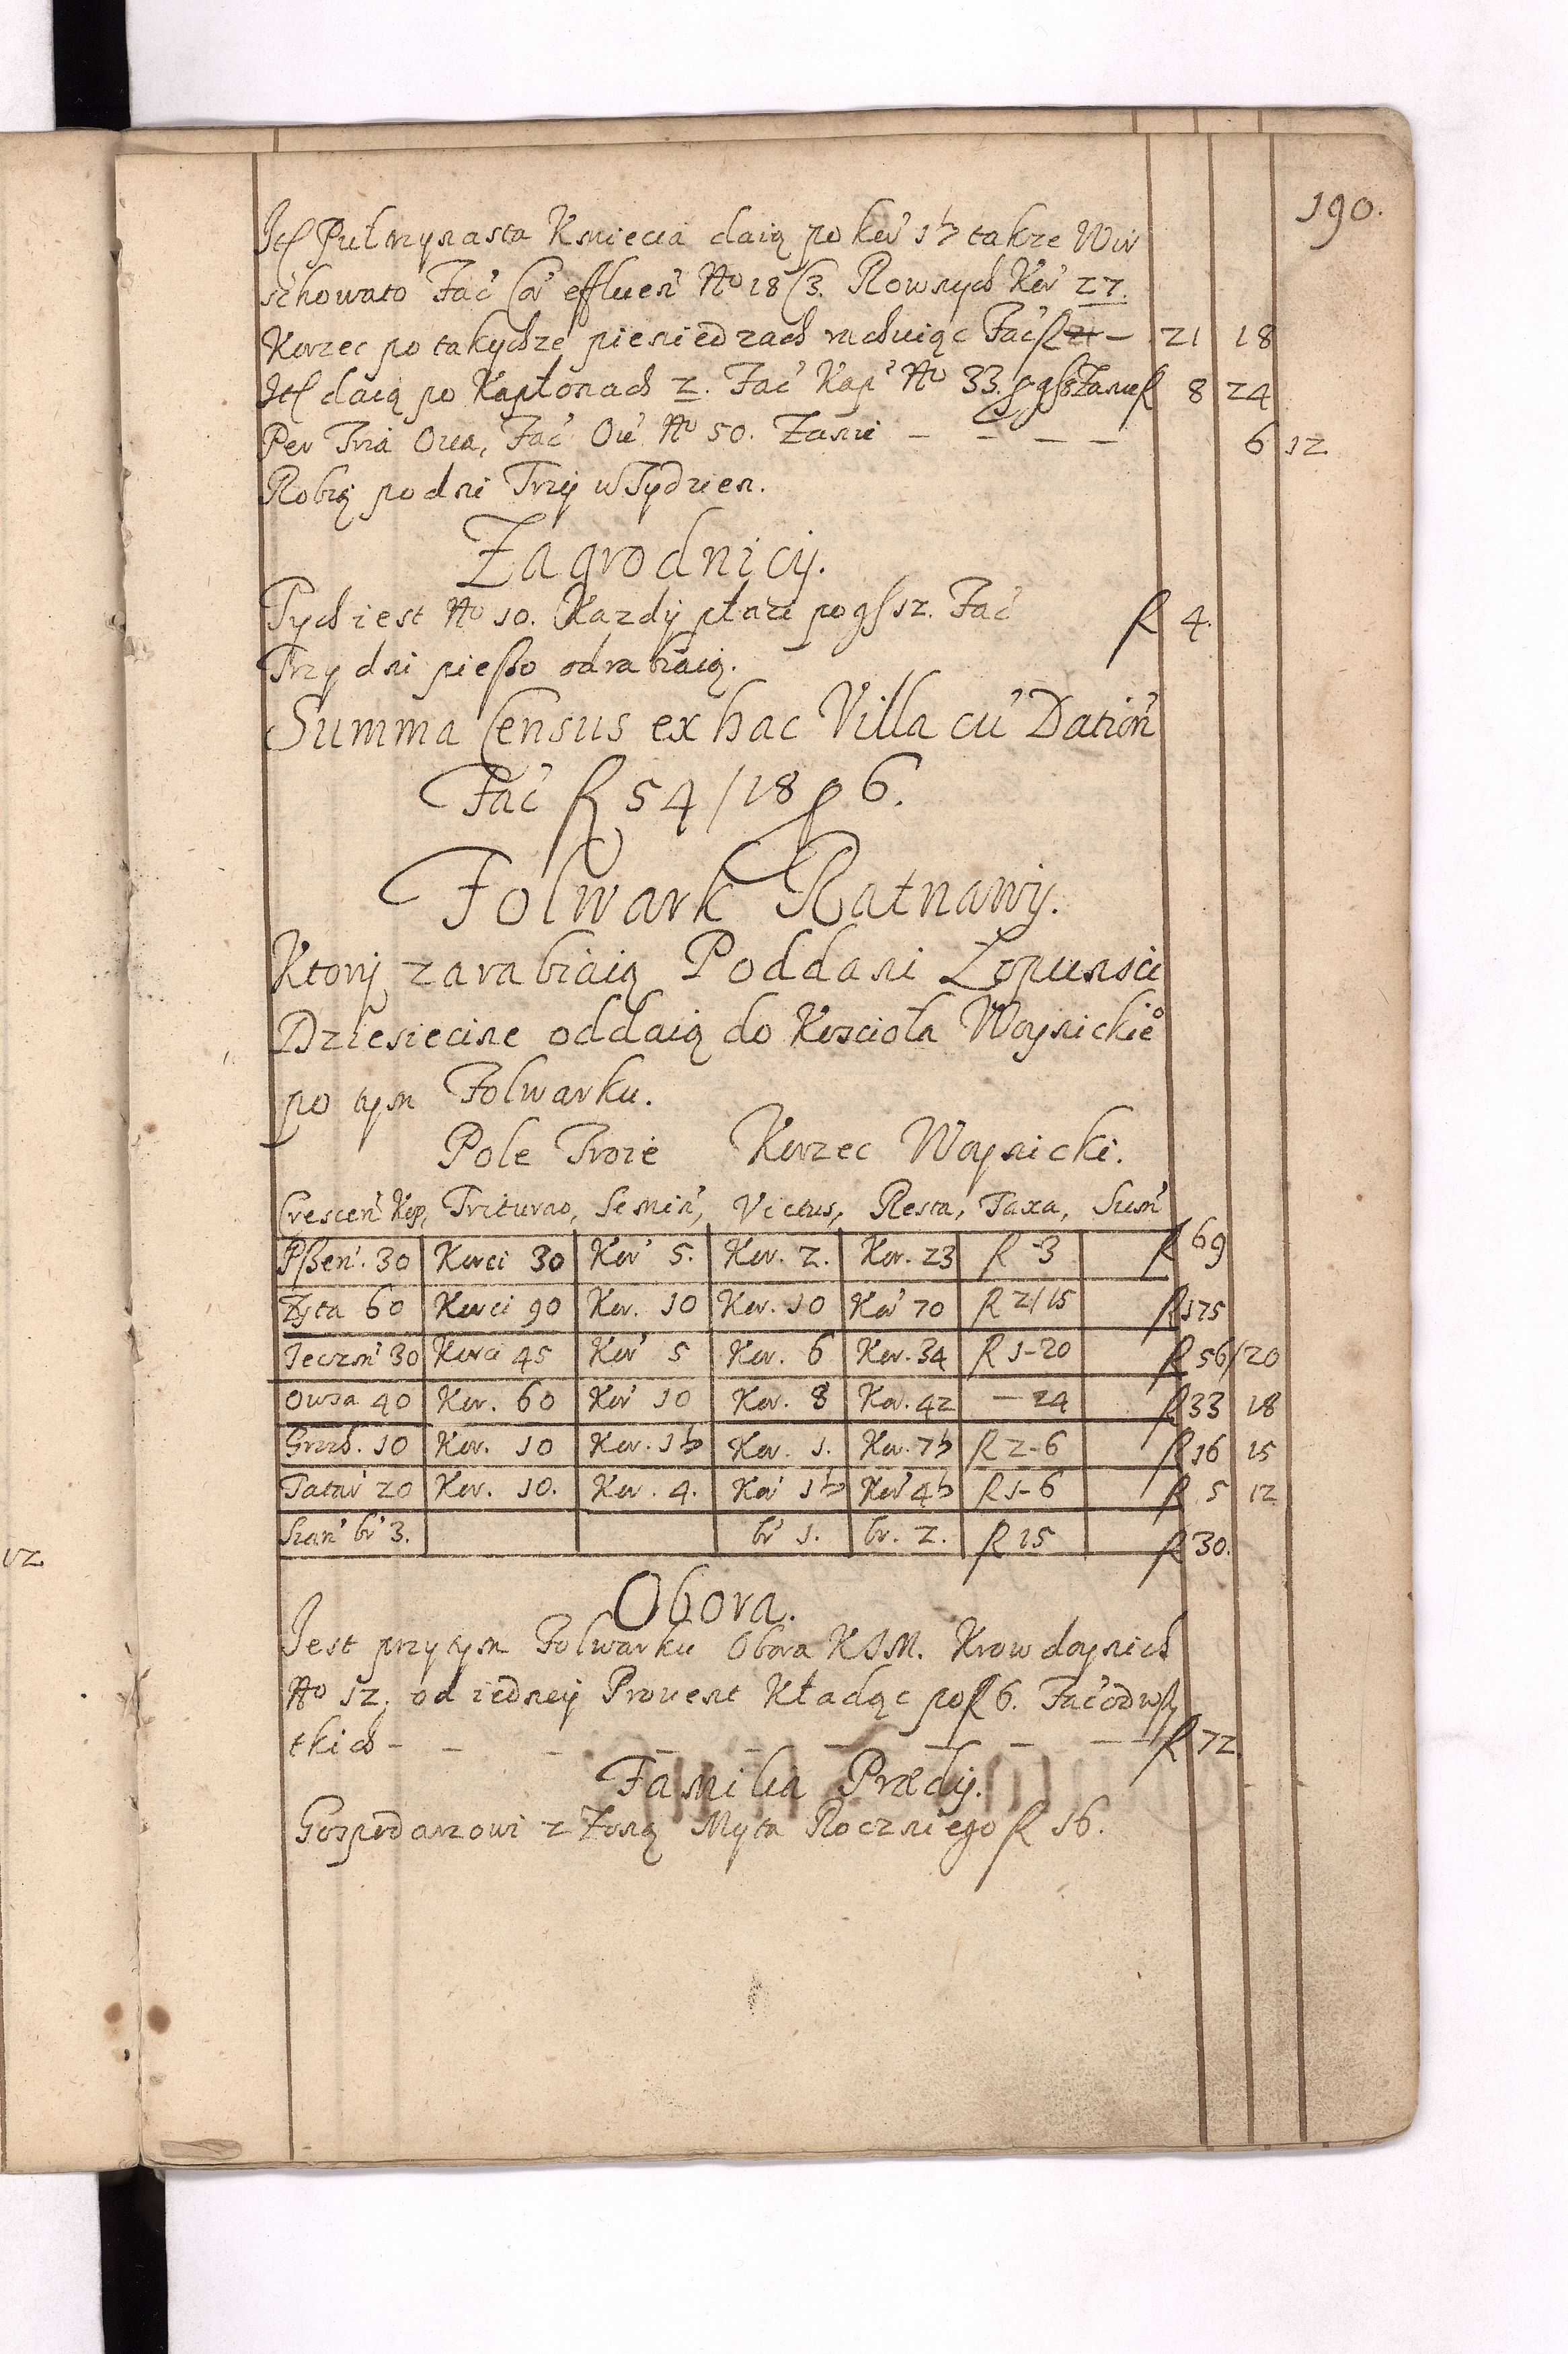 190.
Itę Pułtrzynasta Kmiecia daią po Kor' 1½ także Wir
schowato Fac' Cor' effluen' No 18/3. Rownych Kor' 27.
Korzec po takychże pieniedzach rachuiąc Fac' f 21 — 21 18
Itę daią po Kapłonach 2. Fac' Kap' No 33. p g 8 Zanie f 8 24
Per Tria Oua, Fac' Ou' No 50. Zanie — — — — 6 12
Robią po dni Trzÿ w Tydzien.
Zagrodnicÿ.
Tych iest No 10. Kazdÿ płaci po gſ 12. Fac' f 4.
Trzy dni pieſzo odrabiaią.
Summa Census ex hac Villa cu' Dation'
Fac' f 54/18 p 6.
Folwark Ratnawÿ.
Ktorÿ zarabiaią Poddani Łopunsci
Dziesiecine oddaią do Kościoła Woynickieo
po tym Folwarku.
Pole Troie Korzec Woynicki.
Crescen' Kop, Triturao, Semin', Victus, Resta, Taxa, Sum'
Pſzen'. 30 Korci 30 Kor' 5. Kor. 2. Kor. 23 f -3 f 69
Zyta 60 Korci 90 Kor. 10 Kor. 10 Kor' 70 f 2/15 f 175
Jeczm' 30 Korci 45 Kor' 5 Kor. 6 Kor. 34 f 1-20 f 56/20
Owsa 40 Kor. 60 Kor' 10 Kor. 8 Kor. 42 — 24 f 33 18
Groch. 10 Kor. 10 Kor. 1½ Kor. 1. Kor. 7½ f 2-6 f 16 15
Tatar' 20 Kor. 10. Kor. 4. Kor' 1½ Kor' 4½ f 1-6 f 5 12
Sian' br' 3. br' 1. br. 2. f 15 f 30.
Obora.
Jest przytym Folwarku Obora KJM. Krow doynich
No 12. od iednej Prouent Kładąc po f 6. Fac' od wſzy
tkich — — — — — — — — f 72.
Familia Prædÿ.
Gospodarzowi z Zoną Myta Roczniego f 16.
vz